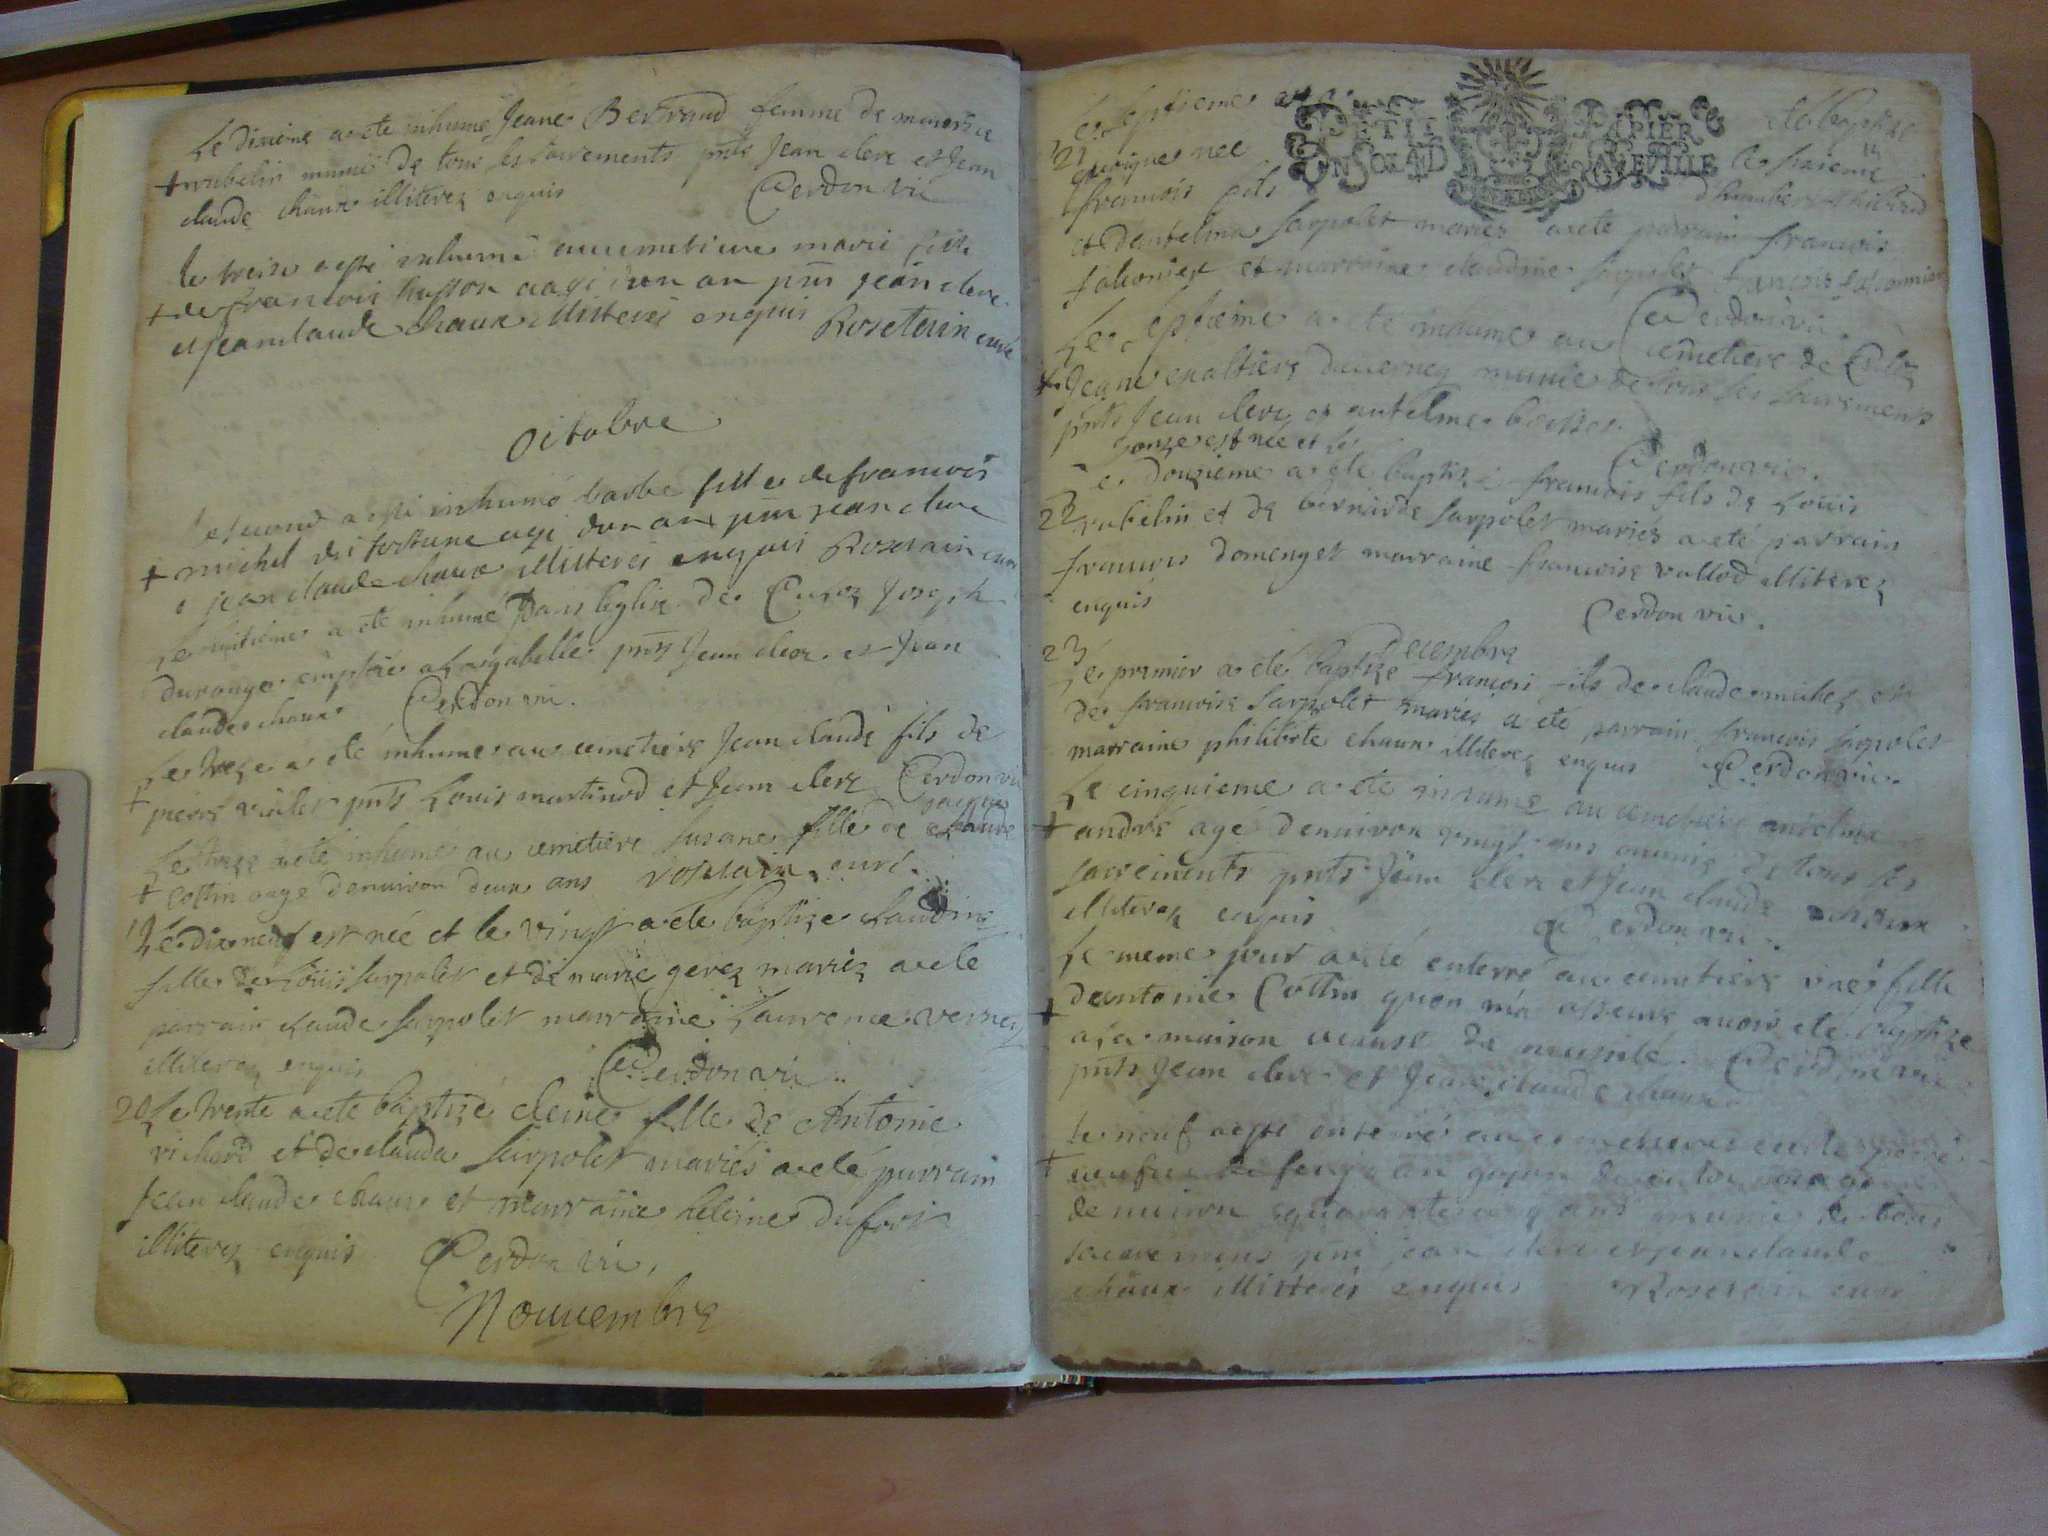 Le dixieme a ete inhumé Jeane Bertrand femme de maurice
+ rubelin munie de tous les sacrements pnts Jean clerc et Jean
claude chaux illiterez enquis Cerdon vic
le treize a esté inhumé au cemetiere marie fille
+ de francois husson aagé d'un an pnts jean clerc
et jean claude chaux illiterés enquis Rosetain curé
Octobre
le second a esté inhumé barbe fille de francois
+ michel dit fortune agé d'un an pnts jean clerc
et jean claude chaux illiterés enquis Rosetain curé
Le huitieme a ete inhumé dans leglise de Culoz Joseph
durange employé a la gabelle pnts Jean clerc et Jean
claude chaux Cerdon vic.
Le treze a eté inhume au cemetiere Jean claude fils de
+ pierre violet pnts Louis martinod et Jean clerc Cerdon vic
Le treze a eté inhumé au cemetiere susane fille de claude
+ Cottin aagé denuiron deux ans rosetain curé.
19 Le dix neuf est née et le vingt a ete baptize claudine
fille de Louis sarpolet et de marie gerez mariez a eté
parrain claude sarpolet marraine Laurence verney
illiterez enquis Cerdon vic.
20 Le trente a ete baptizé cleine fille de Antoine
richard et de clauda sarpolet mariés a eté parrain
Jean claude chaux et marraine heleine dufour
illiterez enquis Cerdon vic,
Nouuembre
Le septieme a eté baptizé
21 quoique née le
francois fils d'humbert
PETIT PAPIER
UN SOL A D LA FEUILLE
et dantelma sarpolet mariés a ete parrain francois
falconier et marraine claudine sarpolet francois falconnier
Cerdon vic.
Le septieme a eté inhume au cemetiere de Culoz
+ Jeane duuerney munie de tous ses sacrements
pnts Jean clerc et antelme
Cerdon vic.
onze est née et le
Le douzieme a eté baptizé francois fils de Louis
22 rubelin et de bernarde sarpolet mariez a eté parrain
francois domenget marraine francoise vallod illiterez
enquis Cerdon vic.
Decembre
23 Le premier a eté baptize francois fils de claude michel et
de francoise sarpolet mariez a eté parrain francois sarpolet
marraine philiberte chaux illiterez enquis Cerdon vic.
Le cinquieme a eté inhumé au cemetiere antelme
+ andré agé denuiron vingt ans munis de tous ses
sacrements pnts Jean clerc et Jean claude chaux
illiterez enquis Cerdon vic.
Le meme jour a eté enterré au cemetiere une fille
+ dantoine Cottin quon m'a asseuré auoir eté baptize
a la maison a cause de necessité. Cerdon vic
pnts Jean clerc et Jean claude chaux
le neuf a esté enterré au cemetiere
+
de nuiron quarante cinq ans munie de tous
sacremens pnts jean clerc et jean claude
chaux illiterés enquis Rosetain curé